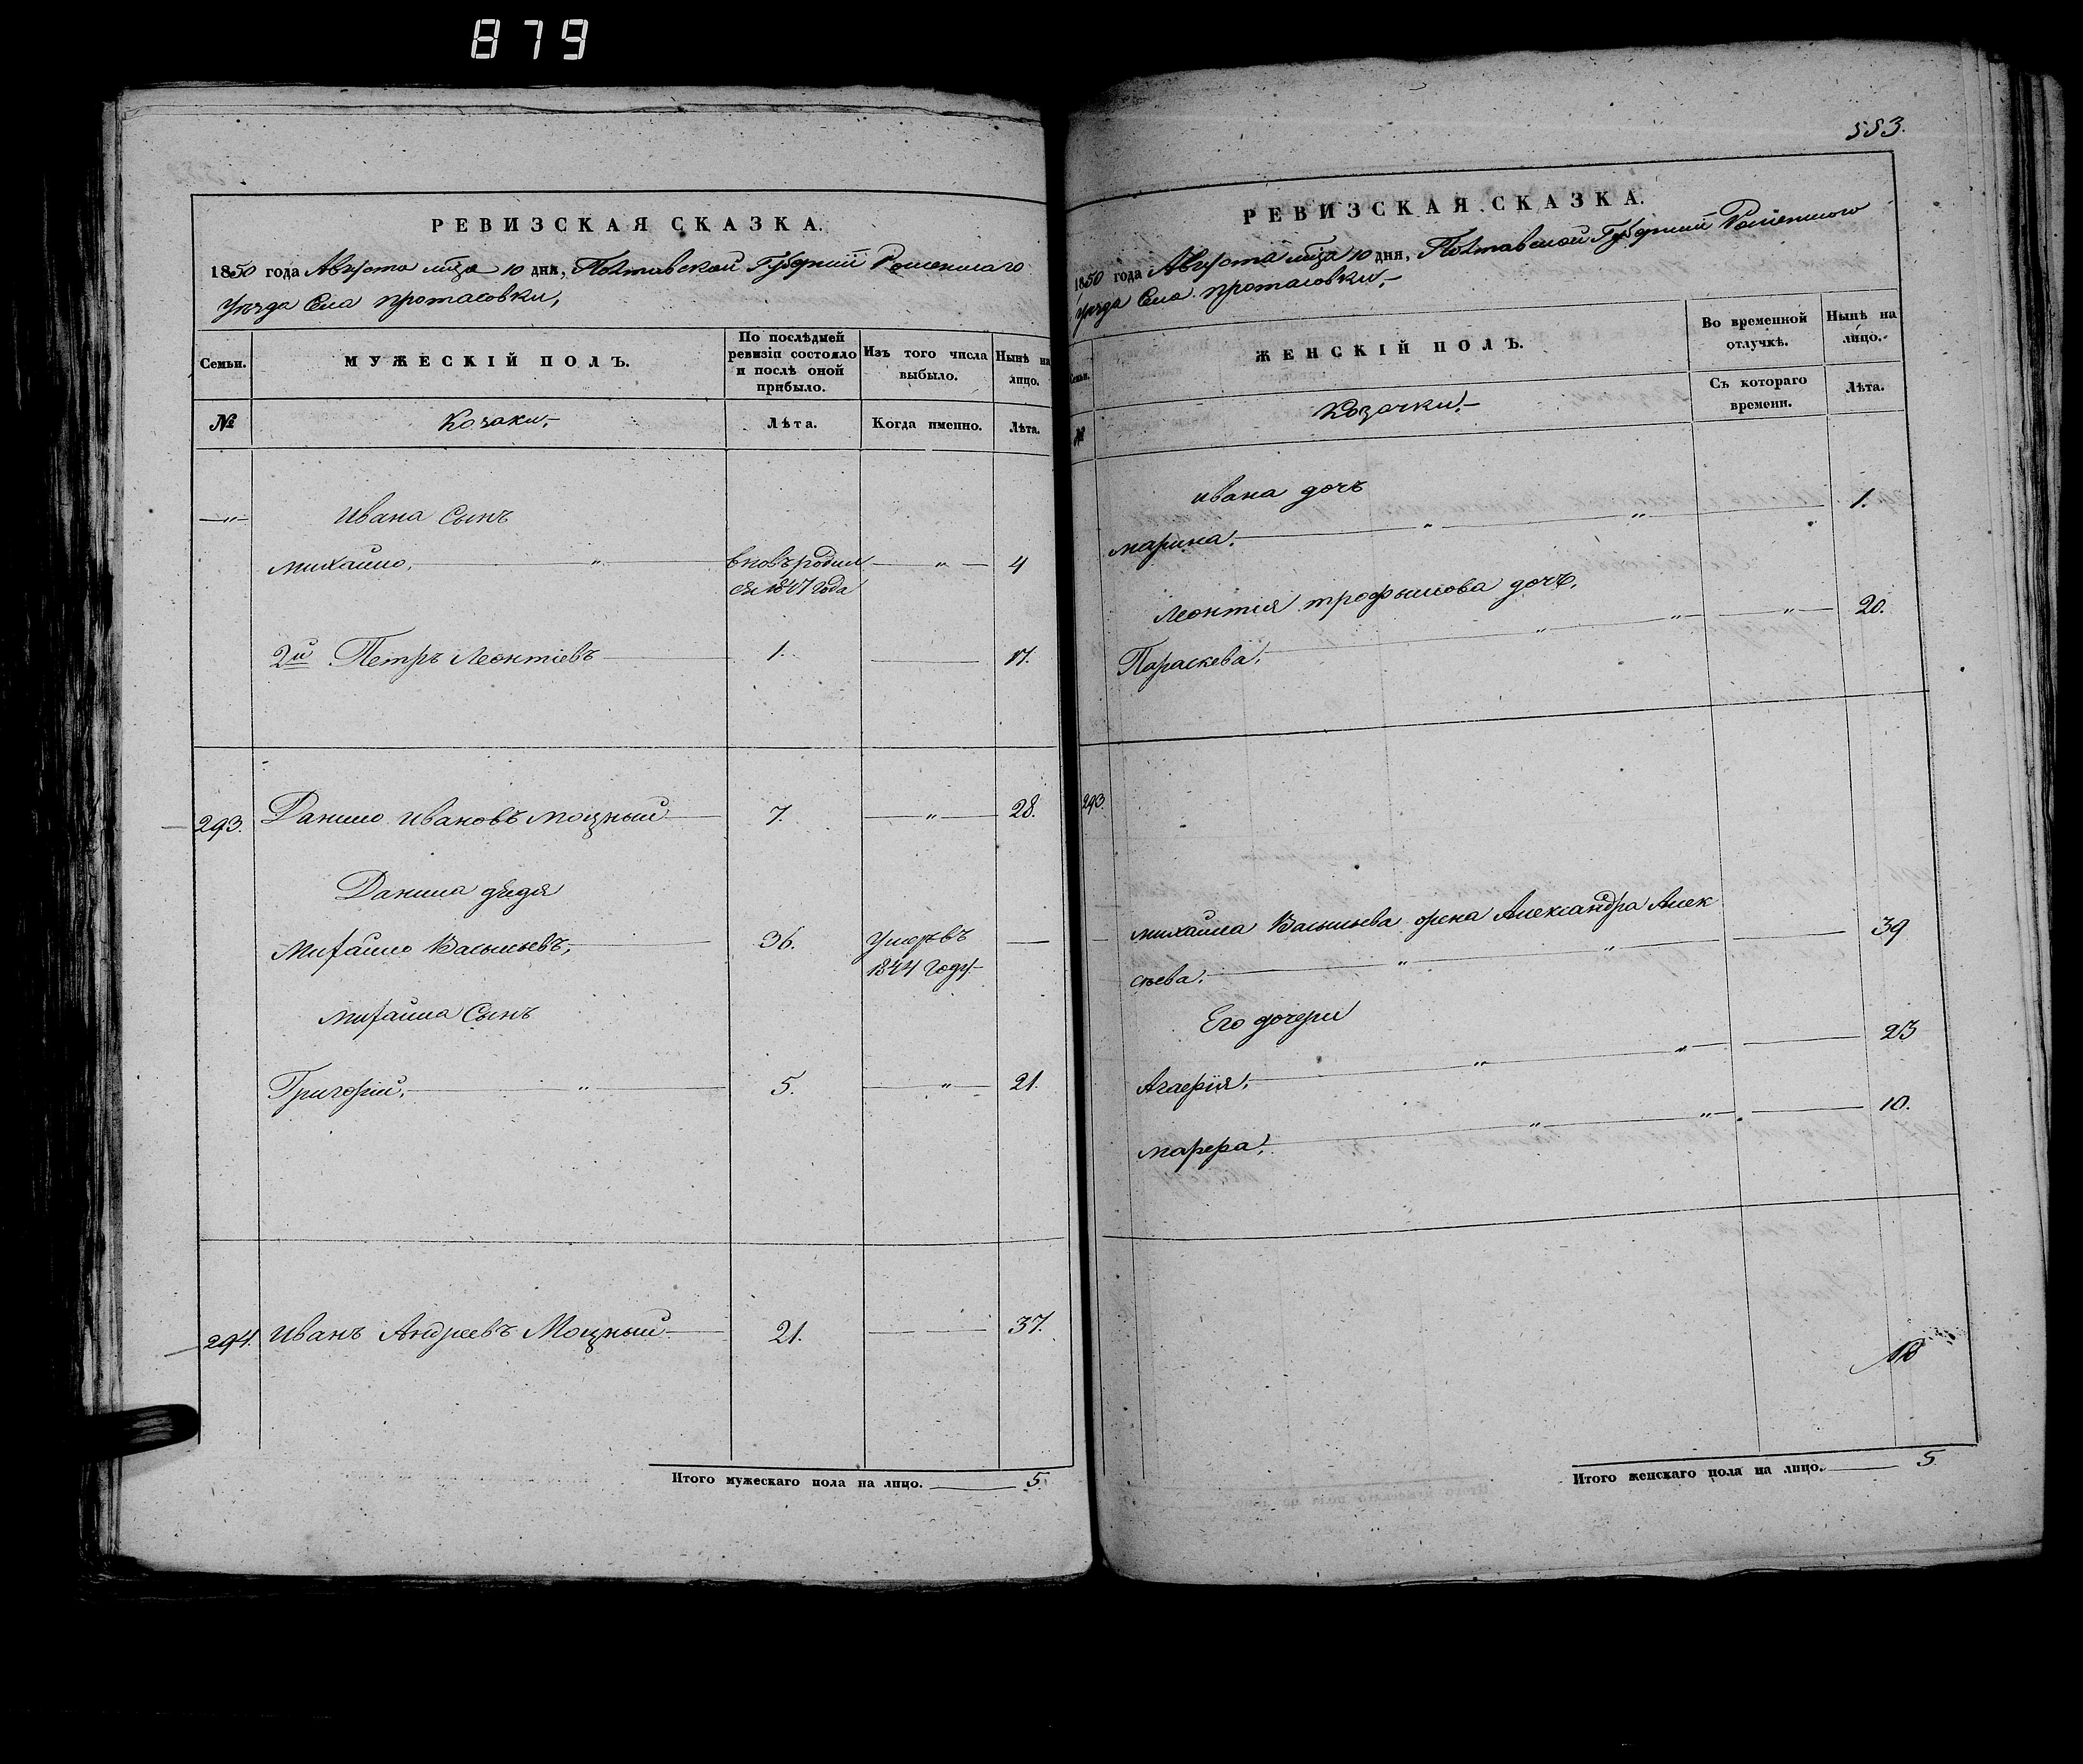 879
РЕВИЗСКАЯ СКАЗКА.
1850 года Августа мѣца 10 дня, Полтавской Губерніи Роменскаго
Уѣзда Села Протасовки,
Семьи.
МУЖЕСКІЙ ПОЛЪ.
По послѣдней ревизіи состояло и послѣ оной прибыло.
Изъ того числа выбыло.
Нынѣ на лицо.
№
Козаки,
Лѣта.
Когда именно.
Лѣта.
Ивана Сынъ
михайло, вновь родил 4
ся 1847 года
2й Петръ Леонтіевъ 1. 17.
293. Данило Ивановъ Мощный 7. 28.
Данила дядя
Михайло Васильевъ, 36. Умеръ въ
1844 году
Михайла Сынъ
Григорій, 5. 21.
294. Иванъ Андреевъ Мощный 21. 37.
Итого мужескаго пола на лицо. 5.
553.
РЕВИЗСКАЯ СКАЗКА.
1850 года Августа мѣца 10 дня, Полтавской Губерніи Роменского
Уѣзда Села Протасовки,
Семьи.
ЖЕНСКІЙ ПОЛЪ.
Во временной отлучкѣ.
Нынѣ на лицо.
№
Козочки,
Съ котораго времени.
Лѣта.
Ивана дочь
марина, 1.
Леонтія трофимова дочь,
Параскева, 20.
293.
михайла Васильева жена Александра Алек
сѣева, 39
Его дочери
23
марфа, 10.
Итого женскаго пола на лицо. 5